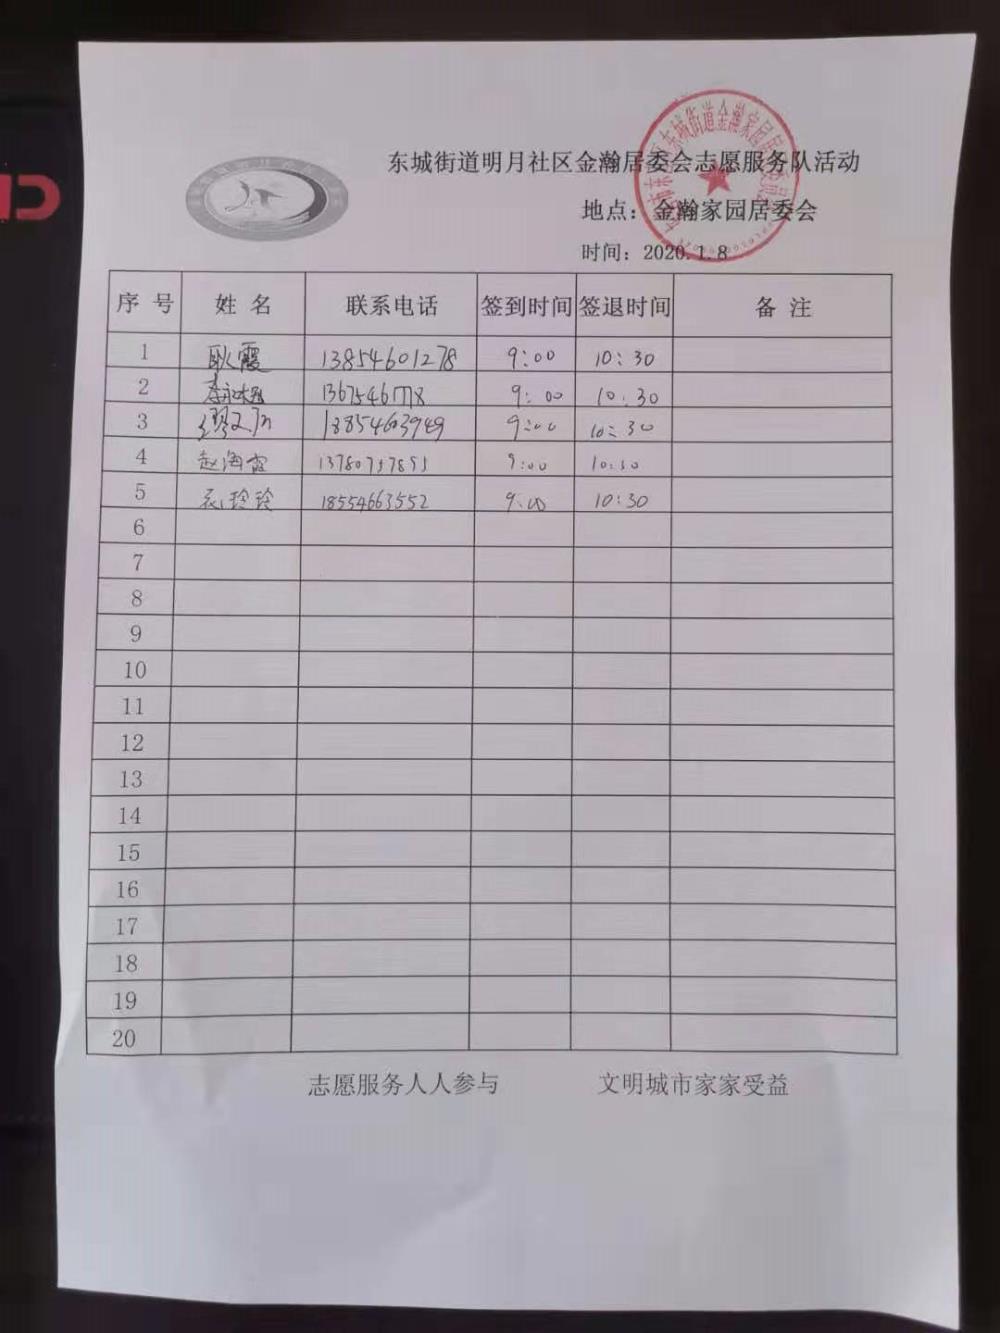 东城街道明月社区金瀚居委会志愿服务队活动
地点：金瀚家园居委会
时间：2020.1.8
序号 姓名 联系电话 签到时间 签退时间 备注
1 耿霞 13854601278 9:00 10:30
2 9:00 10:30
3 18854603949 9:00 10:30
4 赵海霞 13780757855 9:00 10:30
5 衣玲玲 18554663552 9:00 10:30
6
7
8
9
10
11
12
13
14
15
16
17
18
19
20
志愿服务人人参与 文明城市家家受益